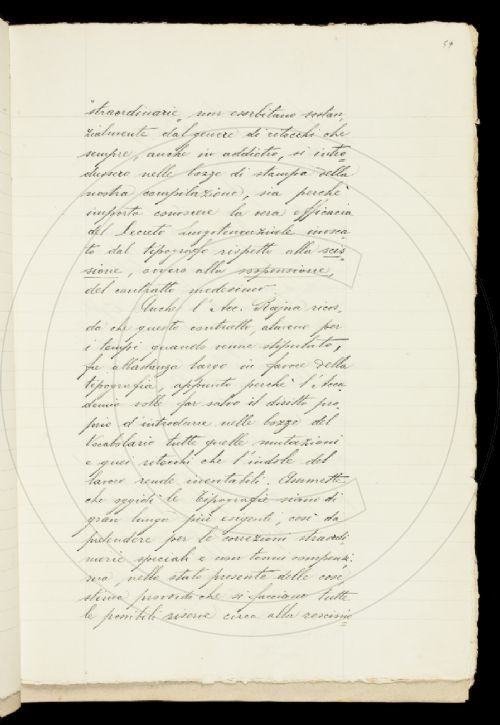 54
"straordinarie" non esorbitano sostan-
zialmente dal genere di ritocchi che
sempre, anche in addietro, si intro-
dussero nelle bozze di stampa della
nostra compilazione, sia perchè
importa conoscere la vera efficacia
del Decreto luogotenenziale invoca-
to dal tipografo rispetto alla scis-
sione, ovvero alla sospensione,
del contratto medesimo.
Anche l'Acc. Rajna ricor-
da che questo contratto, almeno per
i tempi quando venne stipulato,
fu abbastanza largo in favore della
tipografia, appunto perchè l'Acca-
demia volle far salvo il diritto pro-
prio d'introdurre nelle bozze del
Vocabolario tutte quelle mutazioni
e quei ritocchi che l'indole del
lavoro rende inevitabili. Ammette
che oggidì le tipografie siano di
gran lunga più esigenti, così da
pretendere per le correzioni straordi-
narie speciali e non tenui compensi;
ma, nello stato presente delle cose
stima provvido che si facciano tutte
le possibili riserve circa alla rescissio-